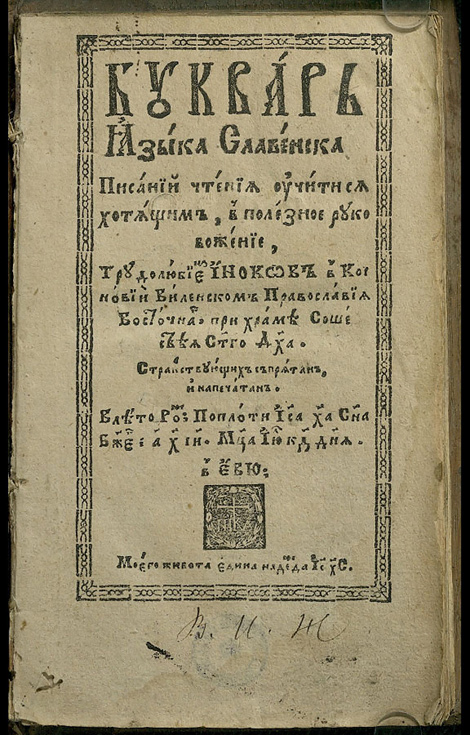 БꙊКВА́РЬ
Ꙗ҆зы́ка Славе́нска
Писа́нїй чте́нїѧ оу҆чи́тисѧ
хотѧ́щимъ, в̾ поле́зное рꙋко
воже́нїе,
Трꙋдолю́бїе́мъ И҆́НОКѠВЪ в̾ Кої
но́вїи Ви́ленскомъ Правосла́вїѧ
Восто́чнагѡ при хра́мѣ Соше
ствїѧ Ст҃го Дх҃а.
Стра́нствꙋющихъ съпрѧ́танъ,
и҆ напеча́танъ.
В̾лѣ́то Рож. По плоти І҆с҃а Хр҃та Сн҃а
Бж҃їѧ: ҂а҃хи҃і. Мц҃а І҆ю҃ кд҃, днѧ.
в̾ Е҆ВЮ:
Моегѡ̀ живота̀ едина надежда І҆с҃ Хс҃.
В. И. Ж